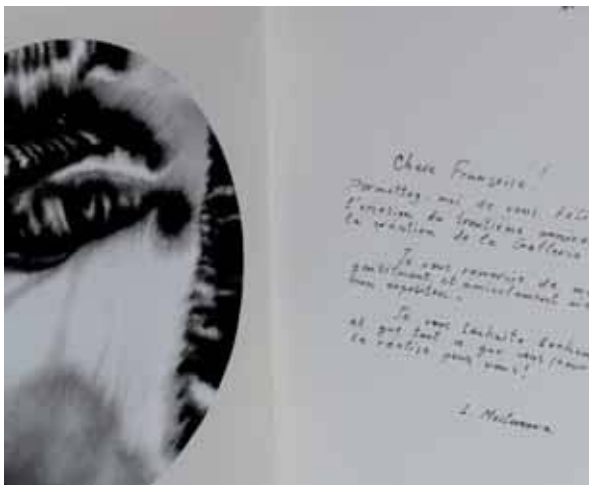 Chère Françoise !
permettez-moi de vous féli
l'occasion du trentième
la création de la Gallerie
Je vous remercie de
gentiment et amicalement
mon exposition.
Je vous souhaite
et que tout ce que vous
se réalise pour vous !